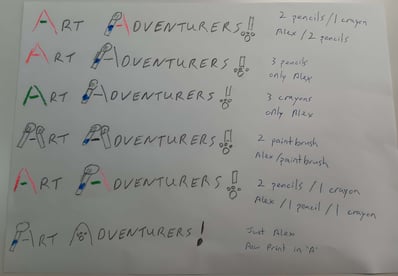 ART ADVENTURERS!!
2 pencils / 1 crayon
Alex / 2 pencils
ART ADVENTURERS!!
3 pencils
only Alex
ART ADVENTURERS!!
3 crayons
only Alex
ART ADVENTURERS!!
2 paintbrush
Alex / paintbrush
ART ADVENTURERS!!
2 pencils / 1 crayon
Alex / 1 pencil / 1 crayon
ART ADVENTURERS!
Just Alex
Paw Print in 'A'